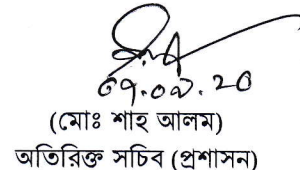 ০৭.০৯.২০
(মোঃ শাহ আলম)
অতিরিক্ত সচিব (প্রশাসন)